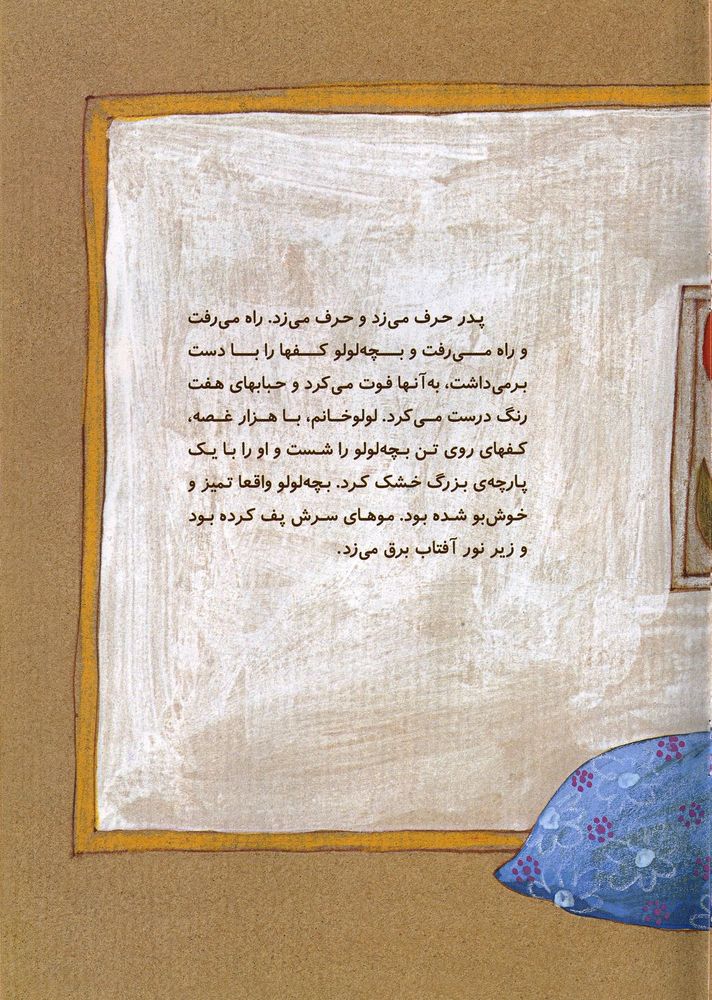 پدر حرف می‌زد و حرف می‌زد. راه می‌رفت
و راه مــی‌رفت و بــچه‌لولو کــفها را بــا دست
برمی‌داشت، به‌آنها فوت می‌کرد و حبابهای هفت
رنگ درست می‌کرد. لولوخانم، با هزار غصه،
کفهای روی تن بچه‌لولو را شست و او را با یک
پارچه‌ی بزرگ خشک کرد. بچه‌لولو واقعا تمیز و
خوش‌بو شده بود. موهای سرش پف کرده بود
و زیر نور آفتاب برق می‌زد.